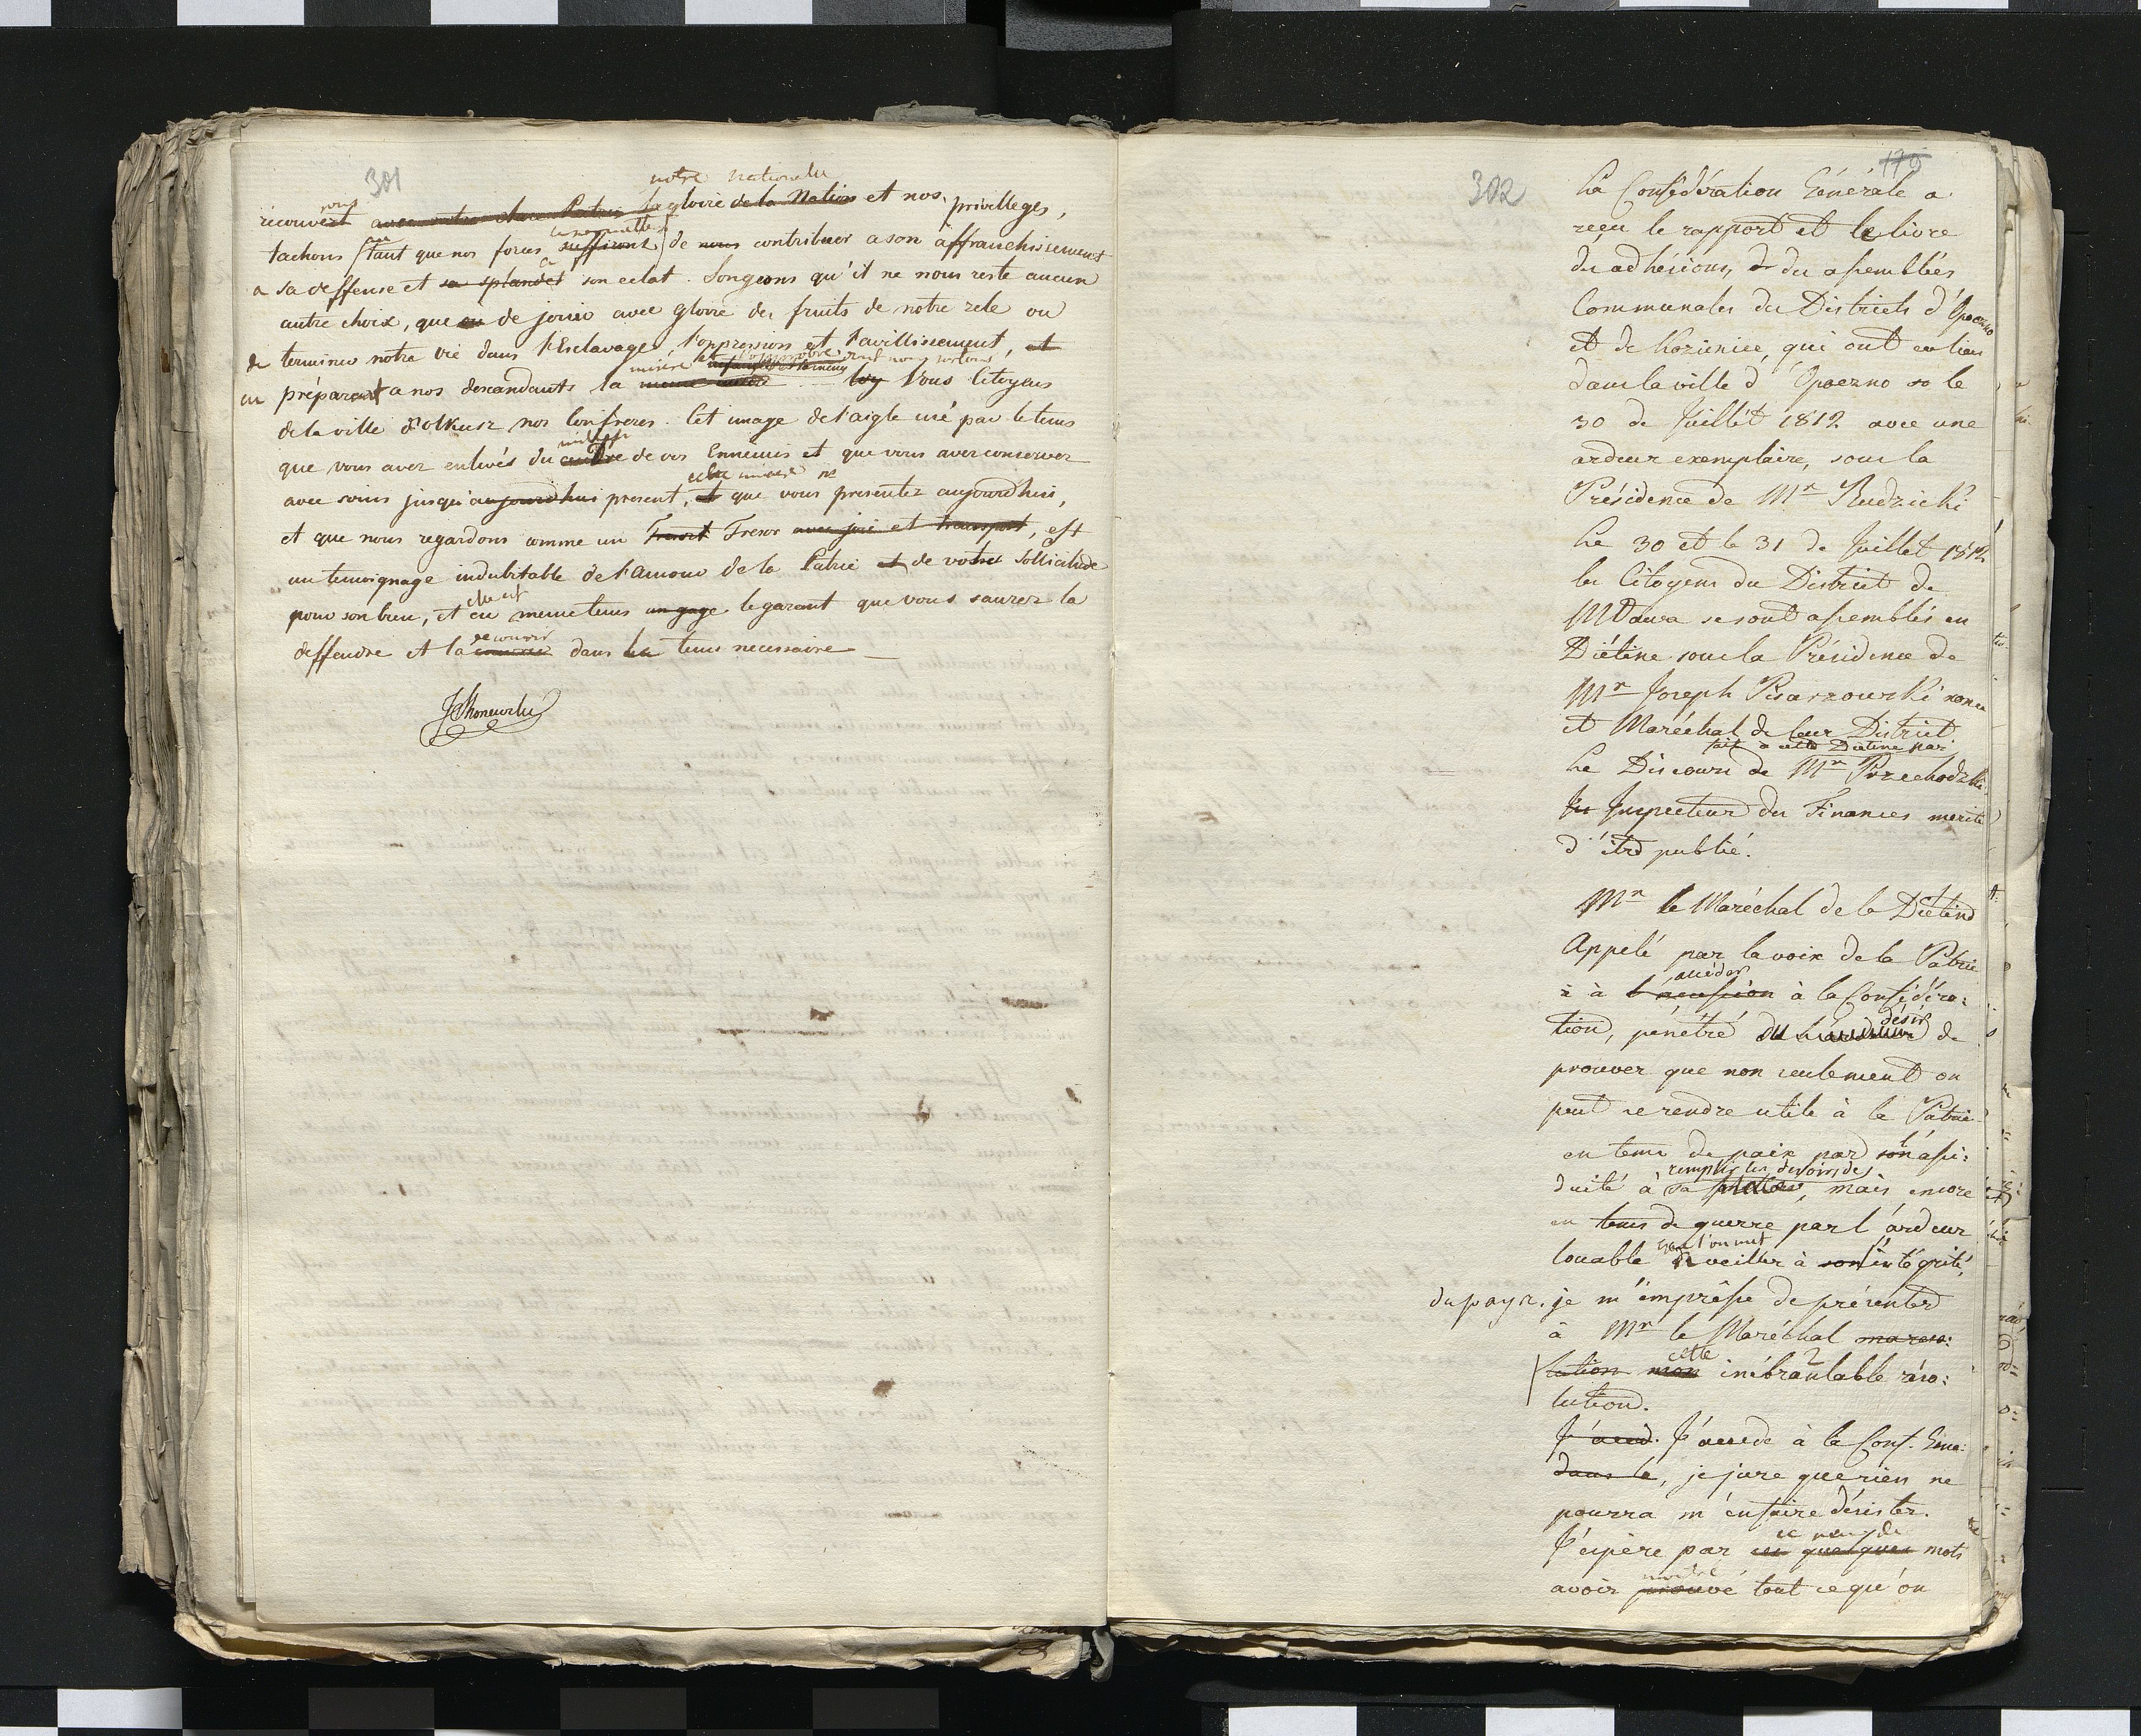 301
notre nationale
recouvert avec notre chere Patrie la gloire de la Nation et nos privilleges,
tachons (tant que nos forces suffiront) de nous contribuer a son affranchissement
a sa deffense et sa splandet son eclat. Songeons qu'il ne nous reste aucun
autre choix, que ou de jouir avec gloire des fruits de notre zele ou
de terminer notre vie dans l'Esclavage l'oppression et l'avillissement, et
en préparant a nos descendants la misère et l'opprobre Vous Citoyens
de la ville d'Olkusz nos Confreres. Cet image de l'aigle usé par le tems
que vous avez enlevés du milieu de vos Ennemis et que vous avez conserver
avec soins jusqu'aujourdhui present, et que vous presentez aujourdhui,
et que nous regardons comme un Tresor avec joie et transport, est
un temoignage indubitable de l'Amour de la Patrie et de votre Sollicitude
pour son bien, et elle est en meme tems un gage le garant que vous saurez la
deffendre et la secourir dans les tems necessaire
302
179
La Confédération Générale a
reçu le rapport et le livre
des adhésions, de des assemblées
Communales des Districts d'Opoczno
et de Kozienice, qui ont eu lieu
dans la ville d'Opoczno so le
30 de Juillet 1812 avec une
ardeur exemplaire, sous la
Présidence de Mr Rudzicki
Le 30 et le 31 de Juillet 1812
les Citoyens du District de
Mlawa se sont assemblés en
Diétine sous la Présidence de
Mr Joseph Pisarzowski nonce
et Maréchal de leur District
fait a cette Diétine par
Le Discours de Mr Przechodzki
In Inspecteur des Finances merite
d'être publié.
Mr le Maréchal de la Diétine
Appelé par la voix de la Patrie
accéder
à à l'accession à la Confédéra:
désir
tion, pénétré du de
prouver que non seulement on
peut se rendre utile à la Patrie
en tems de paix par son l'assi:
remplir les devoirs de
duité à sa, mais encore
en tems de guerre par l'ardeur
que l'on met
louable de veiller à son intégrité,
du pays. je m'empresse de présenter
à Mr le Maréchal ma reso:
cette
lution mon inébranlable réso:
lution.
J'acced. J'accede à la Conf. Gene:
dans la, je jure que rien ne
pourra m'en faire désister.
ce peu de
J'espère par ces quelques mots
avoir prouvé tout ce qu'on